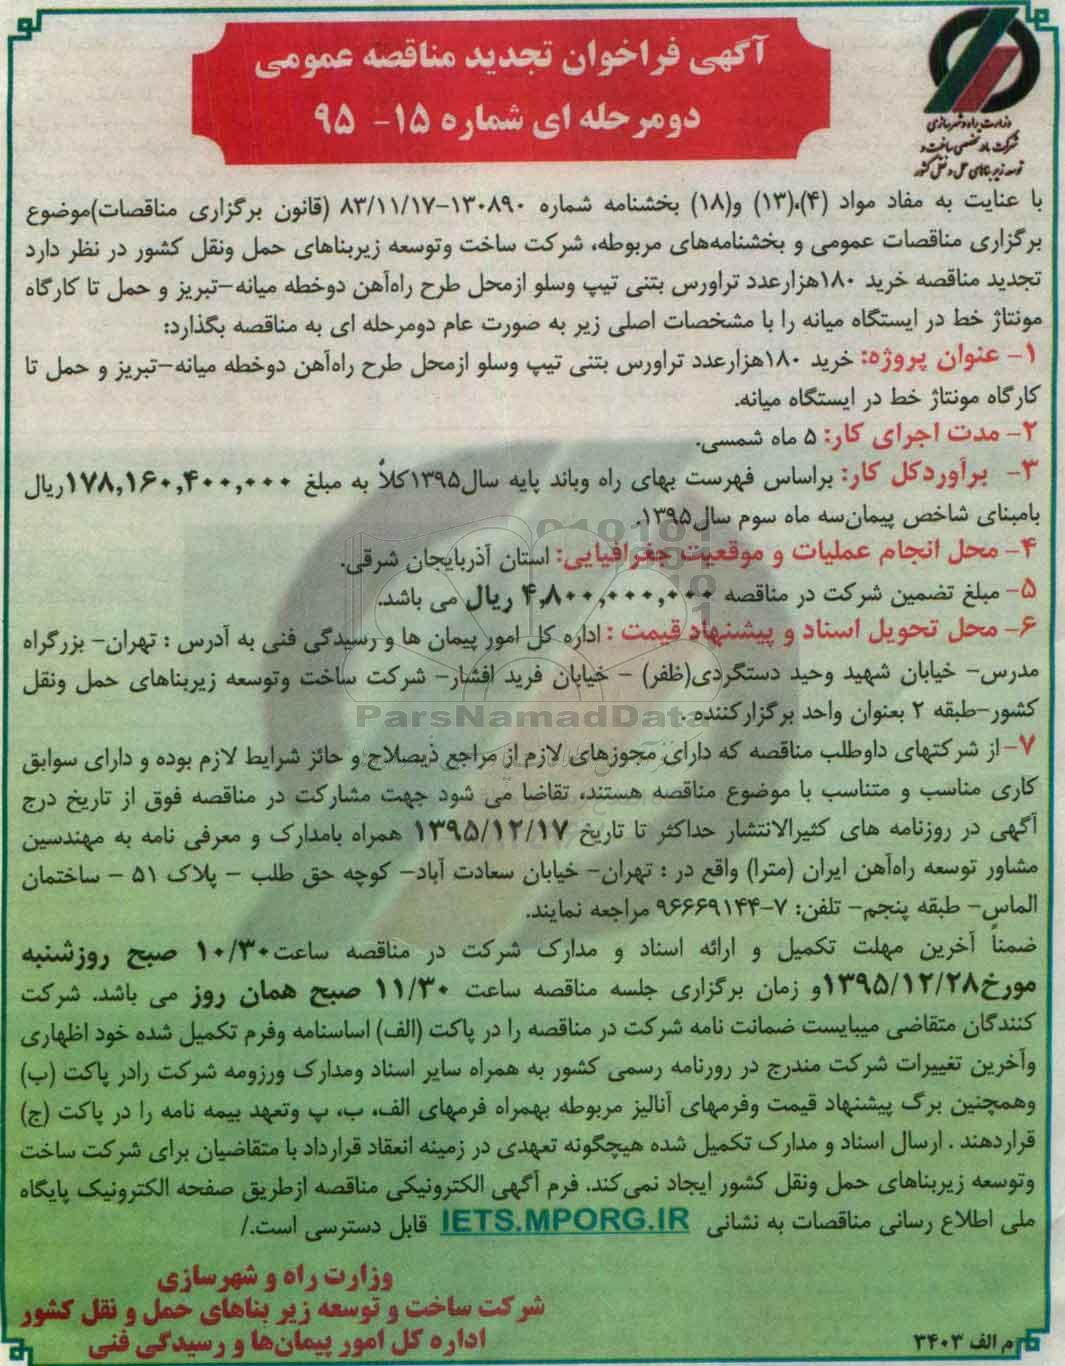 آگهی فراخوان تجدید مناقصه عمومی
دومرحله ای شماره ۱۵- ۹۵
وزارت راه و شهرسازی
شرکت مادر تخصصی ساخت و
توسعه زیربناهای حمل و نقل کشور
با عنایت به مفاد مواد (۴)،(۱۳) و(۱۸) بخشنامه شماره ۱۳۰۸۹۰-۸۳/۱۱/۱۷ (قانون برگزاری مناقصات)موضوع
برگزاری مناقصات عمومی و بخشنامه‌های مربوطه، شرکت ساخت وتوسعه زیربناهای حمل ونقل کشور در نظر دارد
تجدید مناقصه خرید ۱۸۰هزارعدد تراورس بتنی تیپ وسلو ازمحل طرح راه‌آهن دوخطه میانه–تبریز و حمل تا کارگاه
مونتاژ خط در ایستگاه میانه را با مشخصات اصلی زیر به صورت عام دومرحله ای به مناقصه بگذارد:
۱- عنوان پروژه: خرید ۱۸۰هزارعدد تراورس بتنی تیپ وسلو ازمحل طرح راه‌آهن دوخطه میانه–تبریز و حمل تا
کارگاه مونتاژ خط در ایستگاه میانه.
۲- مدت اجرای کار: ۵ ماه شمسی.
۳- برآوردکل کار: براساس فهرست بهای راه وباند پایه سال۱۳۹۵کلاً به مبلغ ۱۷۸,۱۶۰,۴۰۰,۰۰۰ریال
بامبنای شاخص پیمان‌سه ماه سوم سال۱۳۹۵.
۴- محل انجام عملیات و موقعیت جغرافیایی: استان آذربایجان شرقی.
۵- مبلغ تضمین شرکت در مناقصه ۴,۸۰۰,۰۰۰,۰۰۰ ریال می باشد.
۶- محل تحویل اسناد و پیشنهاد قیمت : اداره کل امور پیمان ها و رسیدگی فنی به آدرس : تهران- بزرگراه
مدرس- خیابان شهید وحید دستگردی(ظفر) - خیابان فرید افشار- شرکت ساخت وتوسعه زیربناهای حمل ونقل
کشور-طبقه ۲ بعنوان واحد برگزارکننده .
ParsNamadData
۷-از شرکتهای داوطلب مناقصه که دارای مجوزهای لازم از مراجع ذیصلاح و حائز شرایط لازم بوده و دارای سوابق
کاری مناسب و متناسب با موضوع مناقصه هستند، تقاضا می شود جهت مشارکت در مناقصه فوق از تاریخ درج
آگهی در روزنامه های کثیرالانتشار حداکثر تا تاریخ ۱۳۹۵/۱۲/۱۷ همراه بامدارک و معرفی نامه به مهندسین
مشاور توسعه راه‌آهن ایران (مترا) واقع در : تهران- خیابان سعادت آباد- کوچه حق طلب - پلاک ۵۱ - ساختمان
الماس- طبقه پنجم- تلفن: ۷-۹۶۶۶۹۱۴۴ مراجعه نمایند.
ضمناً آخرین مهلت تکمیل و ارائه اسناد و مدارک شرکت در مناقصه ساعت۱۰/۳۰ صبح روزشنبه
مورخ۱۳۹۵/۱۲/۲۸و زمان برگزاری جلسه مناقصه ساعت ۱۱/۳۰ صبح همان روز می باشد. شرکت
کنندگان متقاضی میبایست ضمانت نامه شرکت در مناقصه را در پاکت (الف) اساسنامه وفرم تکمیل شده خود اظهاری
وآخرین تغییرات شرکت مندرج در رورنامه رسمی کشور به همراه سایر اسناد ومدارک ورزومه شرکت رادر پاکت (ب)
وهمچنین برگ پیشنهاد قیمت وفرمهای آنالیز مربوطه بهمراه فرمهای الف، ب، پ وتعهد بیمه نامه را در پاکت (ج)
قراردهند . ارسال اسناد و مدارک تکمیل شده هیچگونه تعهدی در زمینه انعقاد قرارداد با متقاضیان برای شرکت ساخت
وتوسعه زیربناهای حمل ونقل کشور ایجاد نمی‌کند. فرم آگهی الکترونیکی مناقصه ازطریق صفحه الکترونیک پایگاه
ملی اطلاع رسانی مناقصات به نشانی IETS.MPORG.IR قابل دسترسی است./
وزارت راه و شهرسازی
شرکت ساخت و توسعه زیر بناهای حمل و نقل کشور
اداره کل امور پیمان‌ها و رسیدگی فنی
م الف ۳۴۰۳